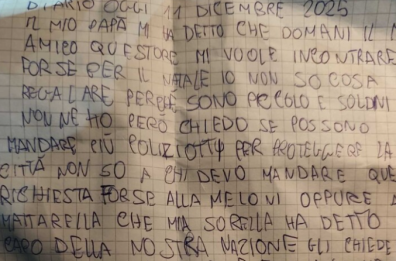 DIARIO OGGI 11 DICEMBRE 2025
IL MIO PAPÀ MI HA DETTO CHE DOMANI IL
AMICO QUESTORE MI VUOLE INCONTRARE
FORSE PER IL NATALE IO NON SO COSA
REGALARE PERCHÉ SONO PICCOLO E SOLDINI
NON NE HO PERÒ CHIEDO SE POSSONO
MANDARE PIÙ POLIZIOTTI PER PROTEGGERE LA
CITTÀ NON SO A CHI DEVO MANDARE QUE
RICHIESTA FORSE ALLA MELONI OPPURE A
MATTARELLA CHE MIA SORELLA HA DETTO
CAPO DELLA NOSTRA NAZIONE GLI CHIEDE